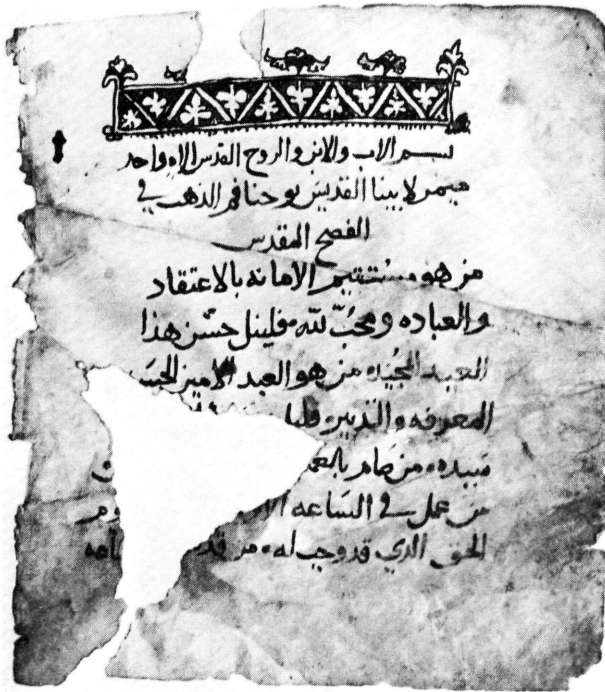 بسم الاب والابن والروح القدس الاه واحد
ميمر لابينا القديس يوحنا فم الذهب في
الفصح المقدس
من هو مستقيم الامانه بالاعتقاد
والعباده ومحبّ لله فلينل حسن هذا
العيد المجيد من هو العبد الامين الحسن
المعرفه والتدبير
سيده من صام
من عمل في الساعه
الحق الدي قد وجب له من قد